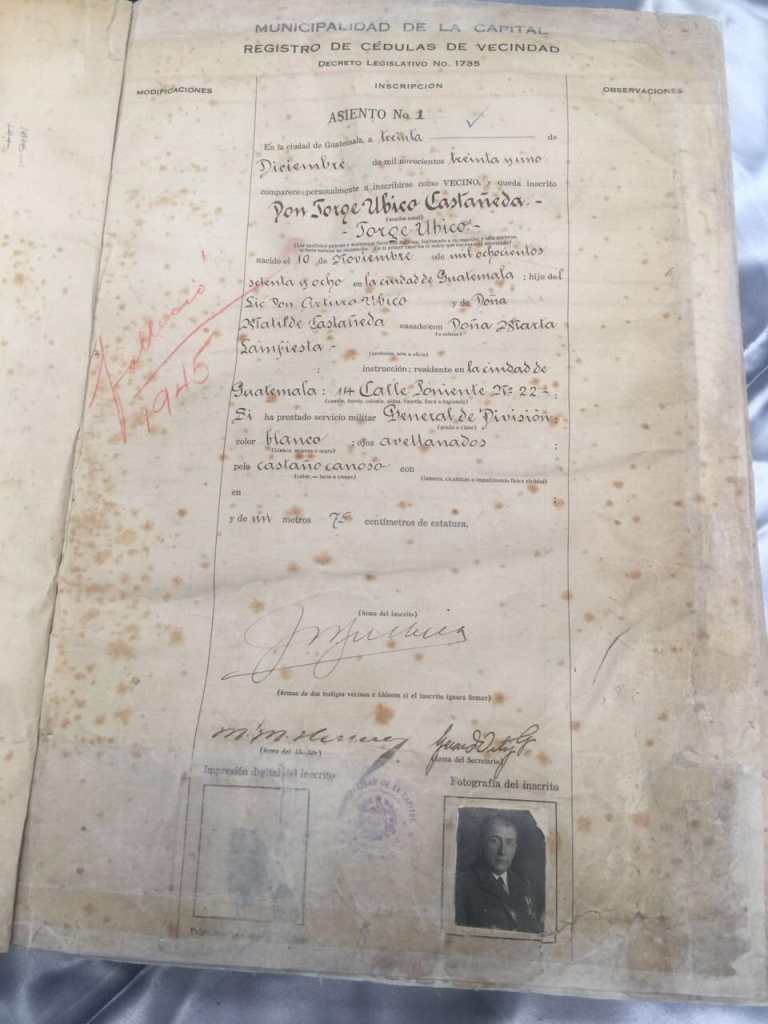 MUNICIPALIDAD DE LA CAPITAL
REGISTRO DE CÉDULAS DE VECINDAD
DECRETO LEGISLATIVO No. 1735
MODIFICACIONES
INSCRIPCION
OBSERVACIONES
ASIENTO No 1
En la ciudad de Guatemala, a treinta de
Diciembre de mil novecientos treinta y uno
comparece personalmente a inscribirse como VECINO, y queda inscrito
Don Jorge Ubico Castañeda.-
- Jorge Ubico.-
nacido el 10 de Noviembre de mil ochocientos
setenta y ocho en la ciudad de Guatemala: hijo del
Lic Don Arturo Ubico y de Doña
Matilde Castañeda casado con Doña Marta
Lainfiesta -
(profesión, arte u oficio)
: instrucción; residente en la ciudad de
Guatemala: 14 Calle Poniente No. 22 - ;
Si ha prestado servicio militar General de División;
(grado o clase)
color blanco ; ojos avellanados ;
(blanco, moreno o negro)
pelo castaño canoso con
en ;
y de un metros 75 centímetros de estatura.
falleció!
1945
(firma del inscrito)
(firmas de dos testigos vecinos e idóneos si el inscrito ignora firmar)
(firma del Alcalde)
(firma del Secretario)
Impresión digital del inscrito
Fotografía del inscrito
DE LA CAPITAL